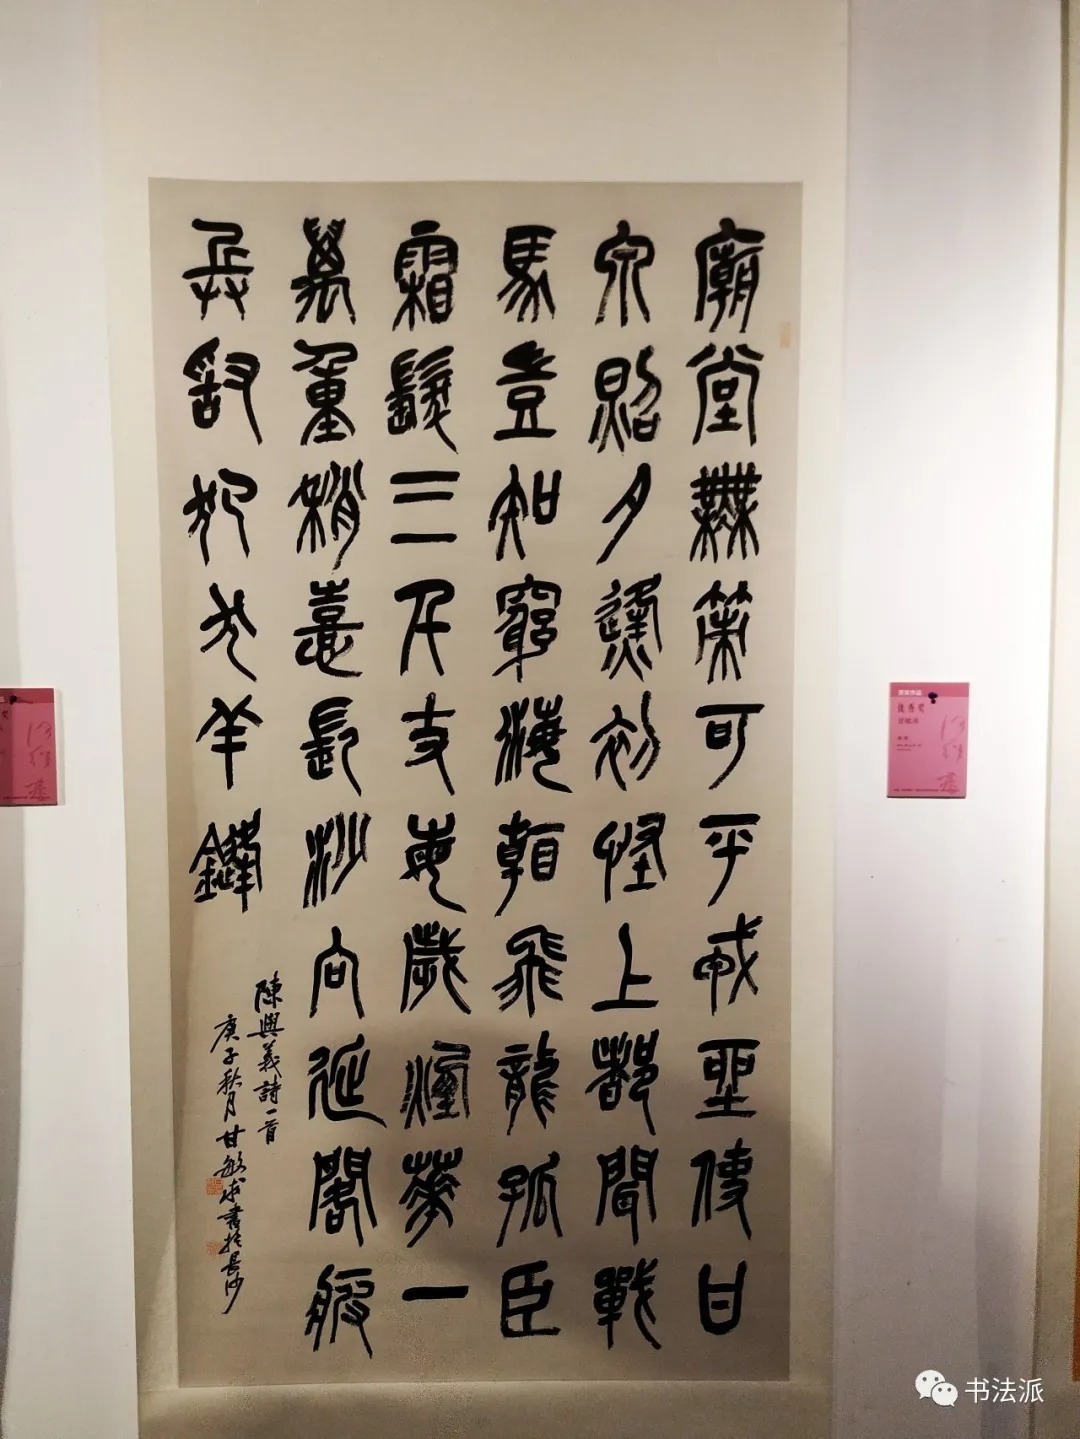 廟堂無策可平戎坐使甘
泉照夕烽初怪上都聞戰
馬豈知窮海看飛龍孤臣
霜髮三千丈每歲煙華一
萬重稍喜長沙向延閣疲
兵敢犯犬羊鋒
陳與義詩一首
庚子秋月甘敏求書於長沙
获奖作品
优秀奖
书法派